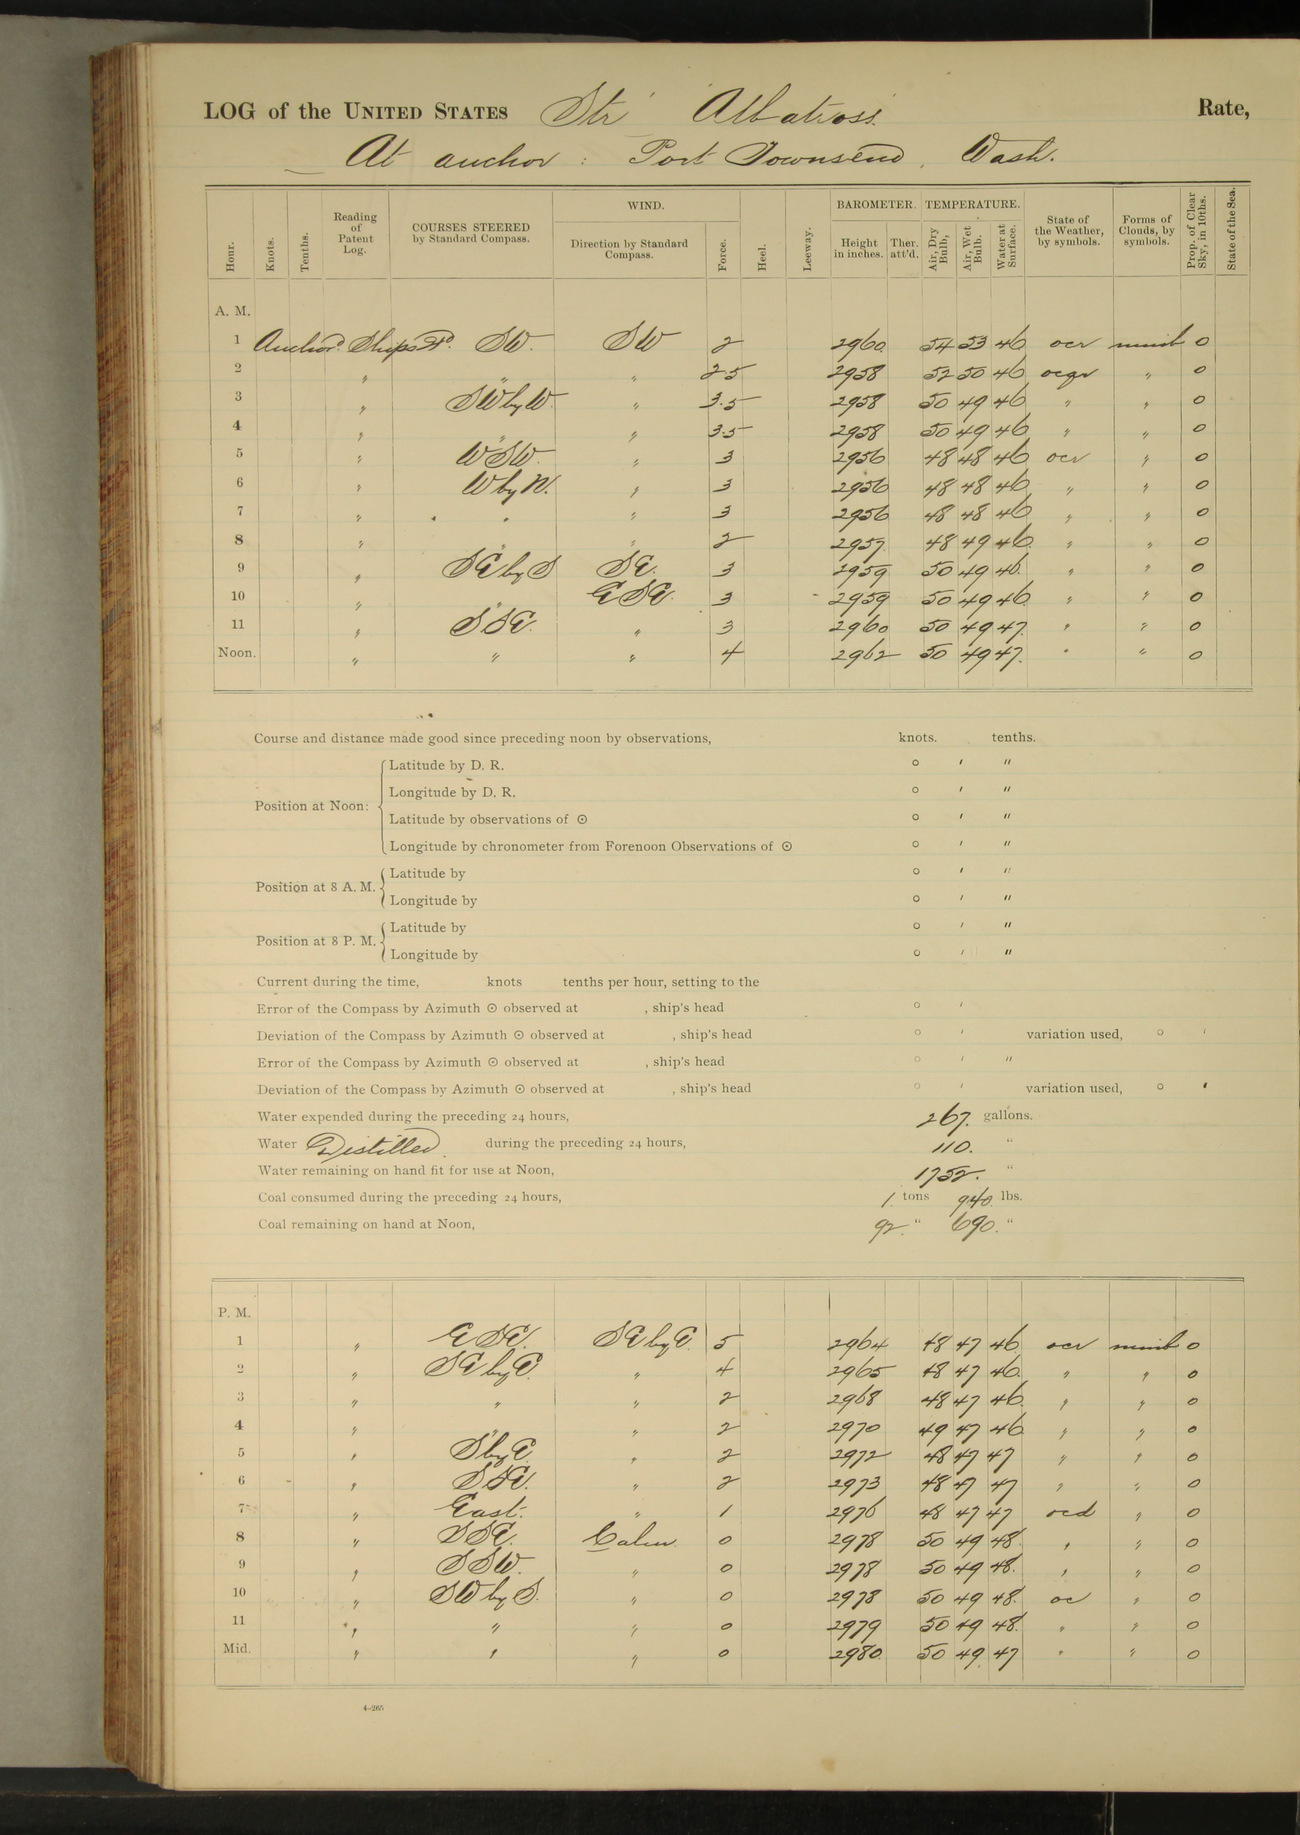 LOG of the UNITED STATES Str Albatross. Rate,
At anchor : Port Townsend, Wash.
Hour. Knots. Tenths. Reading of Patent Log. COURSES STEERED by Standard Compass. WIND. Direction by Standard Compass. Force. Heel. Leeway. BAROMETER. Height in inches. Ther. att'd. TEMPERATURE. Air, Dry Bulb, Air, Wet Bulb. Water at Surface. State of the Weather, by symbols. Forms of Clouds, by symbols. Prop. of Clear Sky, in 10ths. State of the Sea.
A. M.
1 Anchor. Ships Hd. SW. SW 2 2960 54 53 46 ocr nimb 0
2 " " " 2.5 2958 52 50 46 ocqr " 0
3 " SW by W. " 3.5 2958 50 49 46 " " 0
4 " " " 3.5 2958 50 49 46 " " 0
5 " WSW. " 3 2956 48 48 46 ocr " 0
6 " W by N. " 3 2956 48 48 46 " " 0
7 " " " 3 2956 48 48 46 " " 0
8 " " " 2 2957 48 49 46 " " 0
9 " SE by S SE. 3 2959 50 49 46 " " 0
10 " " ESE. 3 2959 50 49 46 " " 0
11 " SSE. " 3 2960 50 49 47 " " 0
Noon. " " " 4 2962 50 49 47 " " 0
Course and distance made good since preceding noon by observations, knots. tenths.
Position at Noon: Latitude by D. R. ° ′ ″
Longitude by D. R. ° ′ ″
Latitude by observations of ⊙ ° ′ ″
Longitude by chronometer from Forenoon Observations of ⊙ ° ′ ″
Position at 8 A. M. Latitude by ° ′ ″
Longitude by ° ′ ″
Position at 8 P. M. Latitude by ° ′ ″
Longitude by ° ′ ″
Current during the time, knots tenths per hour, setting to the
Error of the Compass by Azimuth ⊙ observed at , ship's head ° ′
Deviation of the Compass by Azimuth ⊙ observed at , ship's head ° ′ variation used, ° ′
Error of the Compass by Azimuth ⊙ observed at , ship's head ° ′ ″
Deviation of the Compass by Azimuth ⊙ observed at , ship's head ° ′ variation used, ° ′
Water expended during the preceding 24 hours, 267. gallons.
Water Distilled during the preceding 24 hours, 110. "
Water remaining on hand fit for use at Noon, 1752. "
Coal consumed during the preceding 24 hours, 1. tons 940. lbs.
Coal remaining on hand at Noon, 92. " 690. "
P. M.
1 " ESE. SE by E. 5 2964 48 47 46 ocr nimb 0
2 " SE by E. " 4 2965 48 47 46 " " 0
3 " " " 2 2968 48 47 46 " " 0
4 " " " 2 2970 49 47 46 " " 0
5 " S by E. " 2 2972 48 47 47 " " 0
6 " SSE. " 2 2973 48 47 47 " " 0
7 " East. " 1 2976 48 47 47 ocd " 0
8 " SSE. Calm 0 2978 50 49 48 " " 0
9 " SSW. " 0 2978 50 49 48 " " 0
10 " SW by S. " 0 2978 50 49 48 oc " 0
11 " " " 0 2979 50 49 48 " " 0
Mid. " " " 0 2980 50 49 47 " " 0
4-265